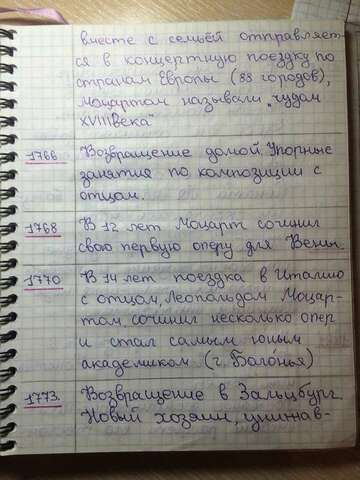 вместе с семьёй отправляет-
ся в концертную поездку по
странам Европы (88 городов),
Моцартом называли „чудом
XVIII века"
1766 Возвращение домой. Упорные
занятия по композиции с
отцом.
1768 В 12 лет Моцарт сочинил
свою первую оперу для Вены.
1770 В 14 лет поездка в Италию
с отцом, Леопольдом Моцар-
том, сочинил несколько опер
и стал самым юным
академиком (г. Болонья)
1773. Возвращение в Зальцбург.
Новый хозяин,